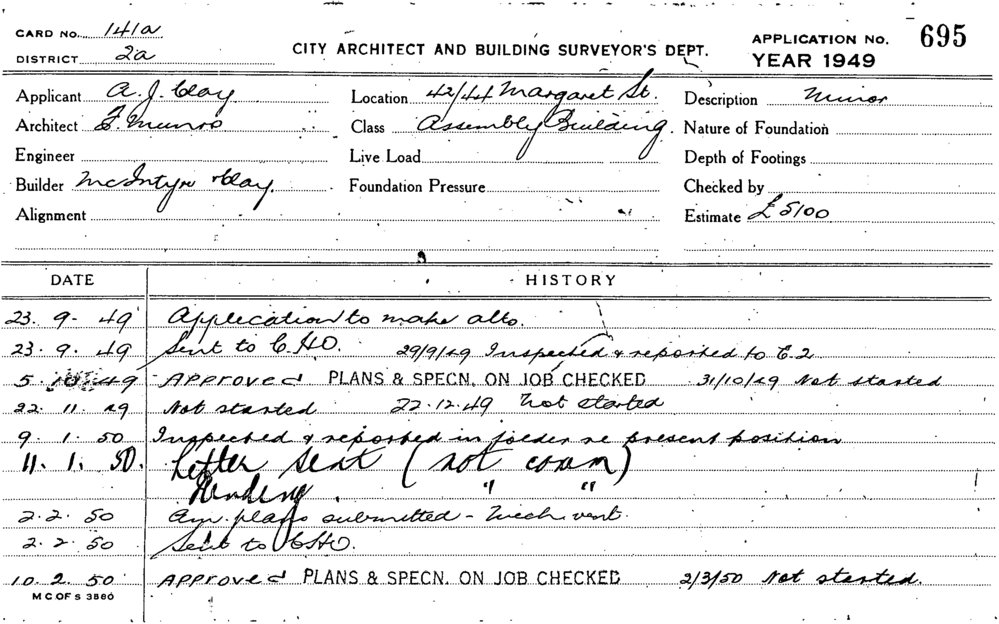 CARD No. 141a
DISTRICT 2a
CITY ARCHITECT AND BUILDING SURVEYOR'S DEPT.
APPLICATION No. 695
YEAR 1949
Applicant A. J. Clay
Location 42/44 Margaret St.
Description Minor
Architect F. Munro
Class Assembly Building
Nature of Foundation
Engineer
Live Load
Depth of Footings
Builder McIntyre & Clay
Foundation Pressure
Checked by
Alignment
Estimate £5100
DATE HISTORY
23. 9. 49 Application to make alts.
23. 9. 49 Sent to C.H.O. 29/9/49 Inspected & reported to E.2
5. 10. 49 APPROVED PLANS & SPECN. ON JOB CHECKED 31/10/49 Not started
22. 11. 49 Not started 22.12.49 Not started
9. 1. 50 Inspected & reported in folder re present position
11. 1. 50. Letter sent (not comm)
Pending. " "
2. 2. 50 Am. plans submitted - Mech. vent.
2. 2. 50 Sent to CHO.
10. 2. 50 APPROVED PLANS & SPECN. ON JOB CHECKED 2/3/50 Not started.
M C OF S 3880